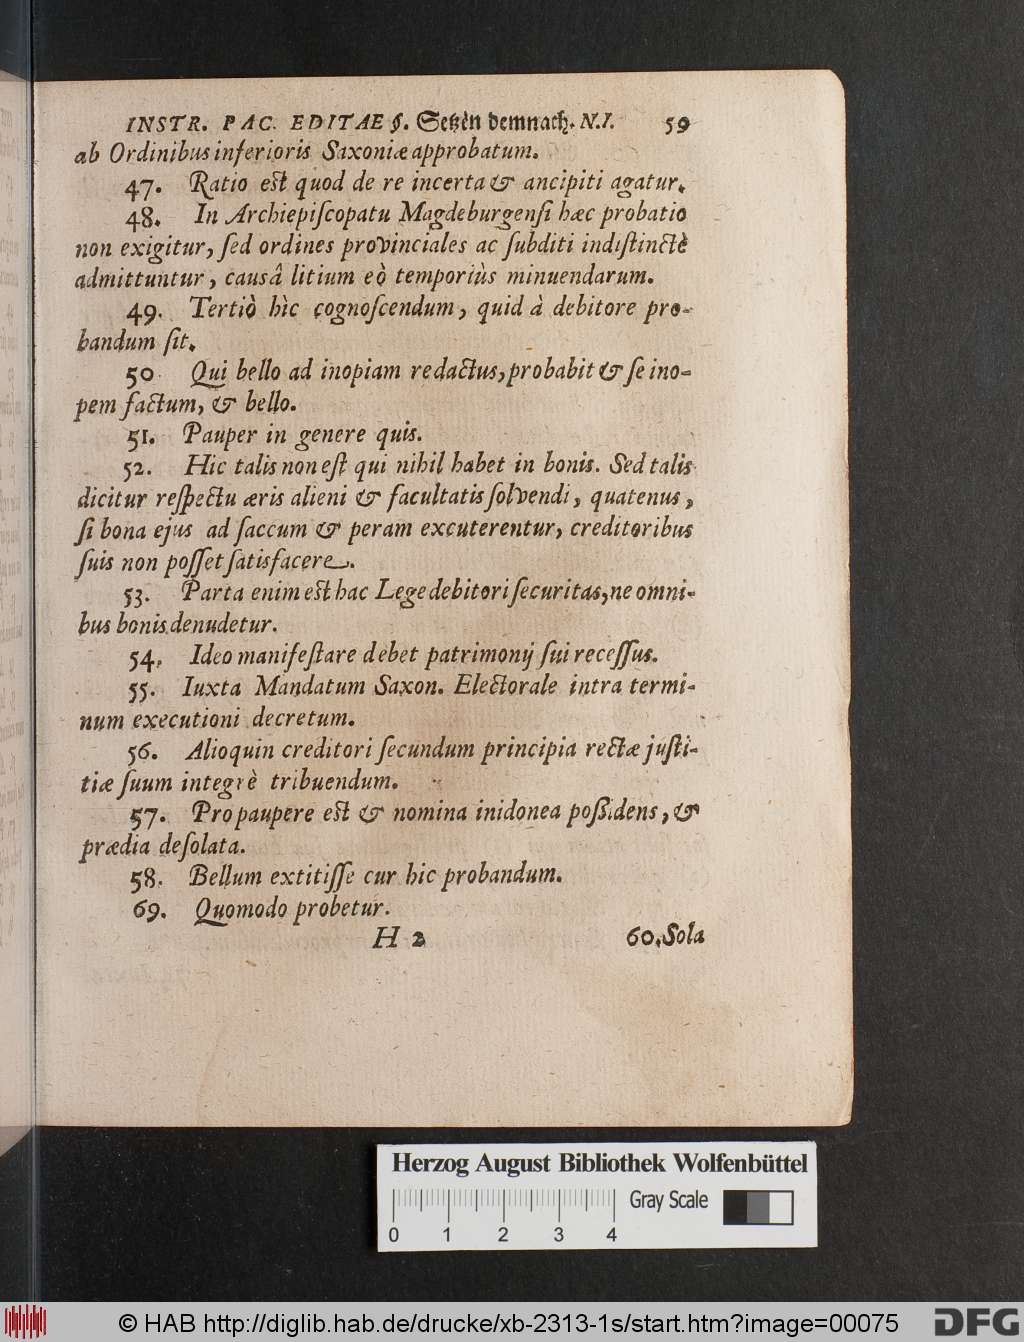 INSTR. PAC. EDITAE §. Setzen demnach. N.I. 59
ab Ordinibus inferioris Saxoniæ approbatum.
47. Ratio est quod de re incerta & ancipiti agatur.
48. In Archiepiſcopatu Magdeburgenſi hæc probatio
non exigitur, ſed ordines provinciales ac ſubditi indiſtinctè
admittuntur, causâ litium eò temporiùs minuendarum.
49. Tertiò hìc cognoſcendum, quid à debitore pro-
bandum ſit.
50. Qui bello ad inopiam redactus, probabit & ſe ino-
pem factum, & bello.
51. Pauper in genere quis.
52. Hic talis non eſt qui nihil habet in bonis. Sed talis
dicitur reſpectu æris alieni & facultatis ſolvendi, quatenus,
ſi bona ejus ad ſaccum & peram excuterentur, creditoribus
ſuis non poſſet ſatisfacere.
53. Parta enim est hac Lege debitori ſecuritas, ne omni-
bus bonis denudetur.
54. Ideo manifeſtare debet patrimonij ſui receſſus.
55. Iuxta Mandatum Saxon. Electorale intra termi-
num executioni decretum.
56. Alioquin creditori ſecundum principia rectæ juſti-
tiæ ſuum integrè tribuendum.
57. Pro paupere est & nomina inidonea poßidens, &
prædia deſolata.
58. Bellum extitiſſe cur hic probandum.
69. Quomodo probetur.
H 2 60. Sola
Herzog August Bibliothek Wolfenbüttel
Gray Scale
0 1 2 3 4
© HAB http://diglib.hab.de/drucke/xb-2313-1s/start.htm?image=00075
DFG